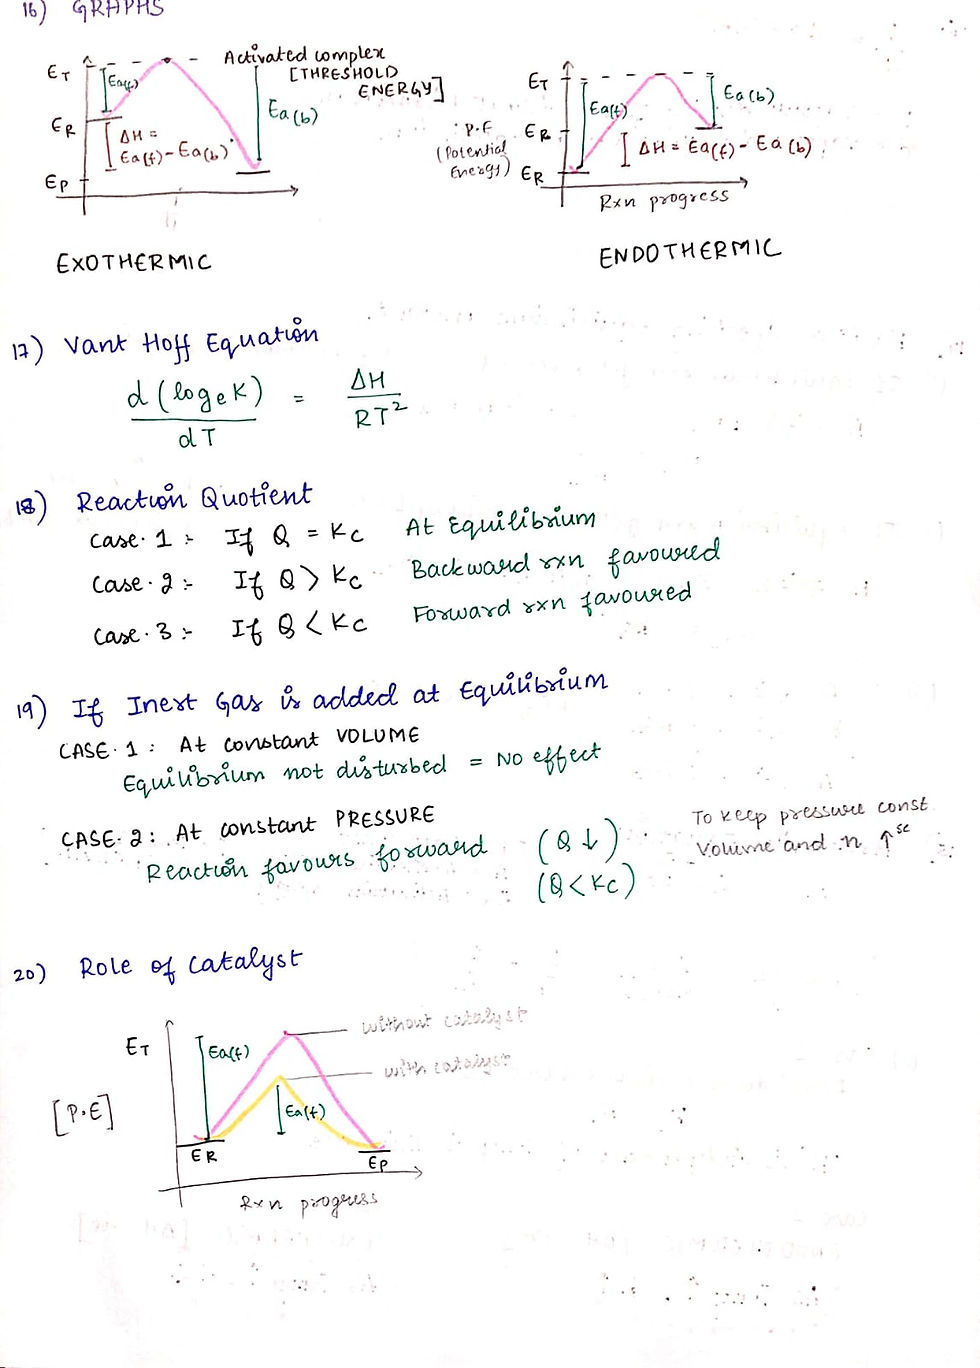 16) GRAPHS
Activated complex
[THRESHOLD
ENERGY]
ET
Ea(f)
Ea(b)
ER
ΔH =
Ea(f) - Ea(b)
EP
EXOTHERMIC
ET
Ea(f)
Ea(b)
P.E
(Potential
Energy)
ER
ΔH = Ea(f) - Ea(b)
ER
Rxn progress
ENDOTHERMIC
17) Vant Hoff Equation
d(logeK)/dT = ΔH/RT²
18) Reaction Quotient
Case. 1 :- If Q = Kc At Equilibrium
Case. 2 :- If Q > Kc Backward rxn favoured
Case. 3 :- If Q < Kc Forward rxn favoured
19) If Inert Gas is added at Equilibrium
CASE. 1 : At constant VOLUME
Equilibrium not disturbed = No effect
CASE. 2 : At constant PRESSURE
Reaction favours forward (Q ↓)
(Q < Kc)
To keep pressure const
Volume and n ↑se
20) Role of Catalyst
without catalyst
ET
Ea(f)
with catalyst
[P.E]
Ea(f)
ER
EP
Rxn progress